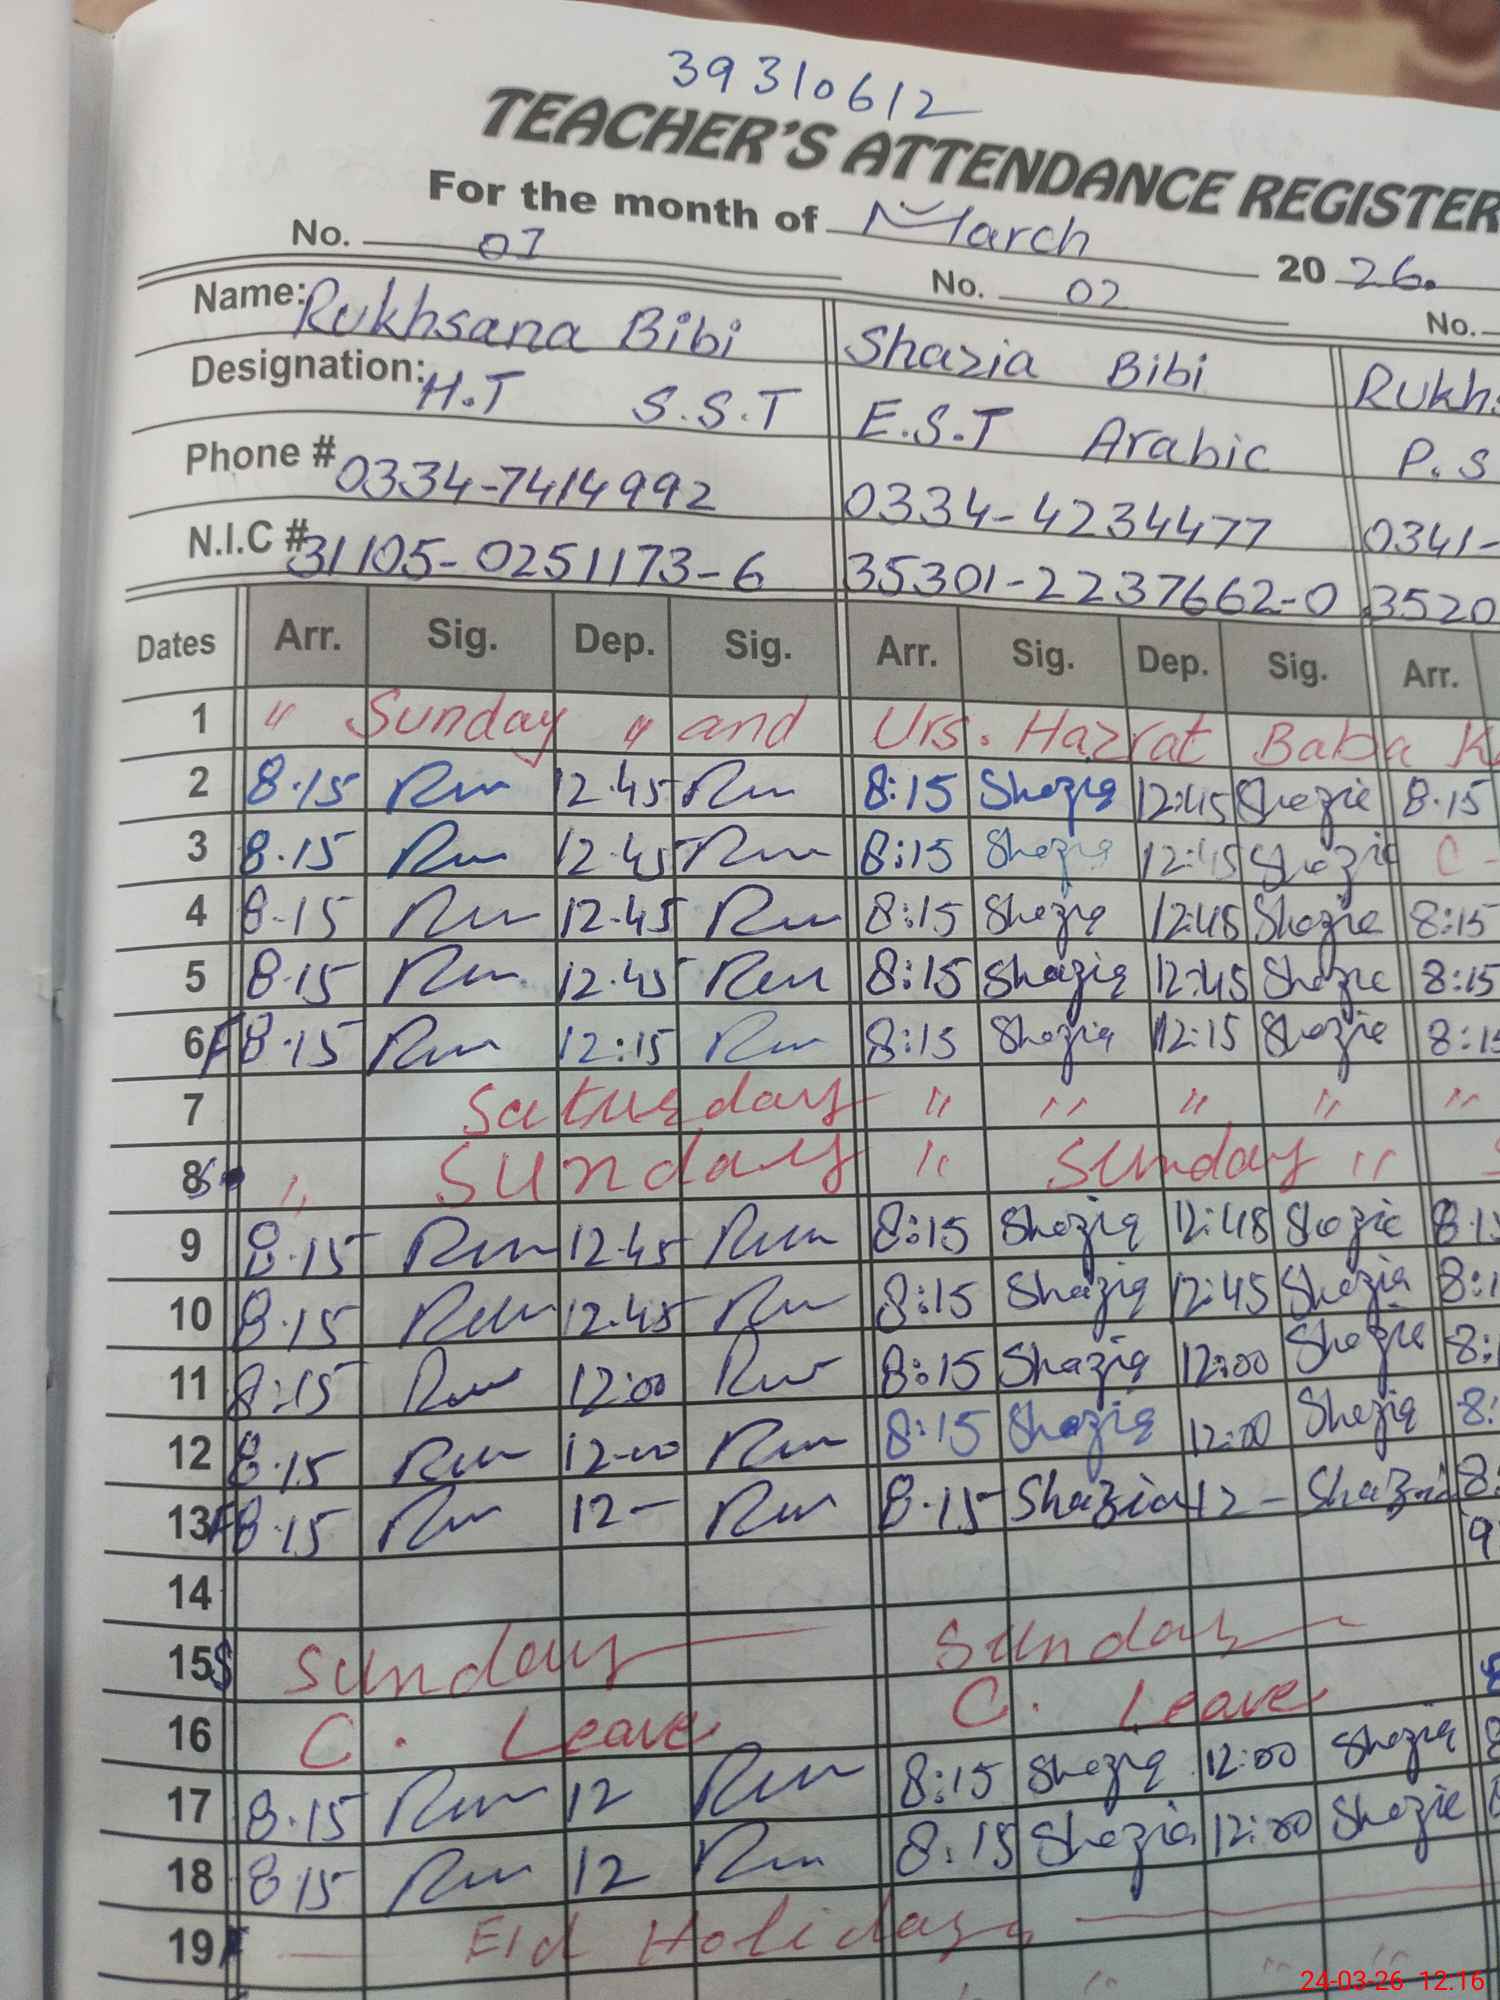 39310612
TEACHER'S ATTENDANCE REGISTER
For the month of March 2026.
No. 01 No. 02 No.
Name: Rukhsana Bibi Shazia Bibi Rukhs
Designation: H.T S.S.T E.S.T Arabic P.S
Phone # 0334-7414992 0334-4234477 0341-
N.I.C # 31105-0251173-6 35301-2237662-0 3520
Dates Arr. Sig. Dep. Sig. Arr. Sig. Dep. Sig. Arr.
1 " Sunday " and Urs. Hazrat Baba K
2 8.15 12.45 8:15 Shazia 12:45 Shazia 8.15
3 8.15 12.45 8:15 Shazia 12:45 Shazia C -
4 8-15 12-45 8:15 Shazia 12:45 Shazia 8:15
5 8.15 12.45 8:15 Shazia 12:45 Shazia 8:15
6 F 8.15 12:15 8:15 Shazia 12:15 Shazia 8:15
7 Saturday " " " " "
8 S " Sunday " Sunday "
9 8.15 12.45 8:15 Shazia 12:45 Shazia 8.1
10 8.15 12.45 8:15 Shazia 12:45 Shazia 8:1
11 8:15 12:00 8:15 Shazia 12:00 Shazia 8:
12 8.15 12-00 8:15 Shazia 12:00 Shazia 8:
13 F 8.15 12- 8.15 Shazia 12- Shazia 8:
14 9
15 S Sunday Sunday
16 C. Leave C. Leave
17 8.15 12 8:15 Shazia 12:00 Shazia
18 8.15 12 8:15 Shazia 12:00 Shazia
19 F Eid Holidays
24-03-26 12:16